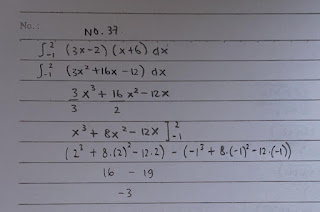 No.:
NO. 37
∫₋₁² (3x-2) (x+6) dx
∫₋₁² (3x² + 16x - 12) dx
3/3 x³ + 16/2 x² - 12x
x³ + 8x² - 12x ]₋₁²
(2³ + 8.(2)² - 12.2) - (-1³ + 8.(-1)² - 12.(-1))
16 - 19
-3